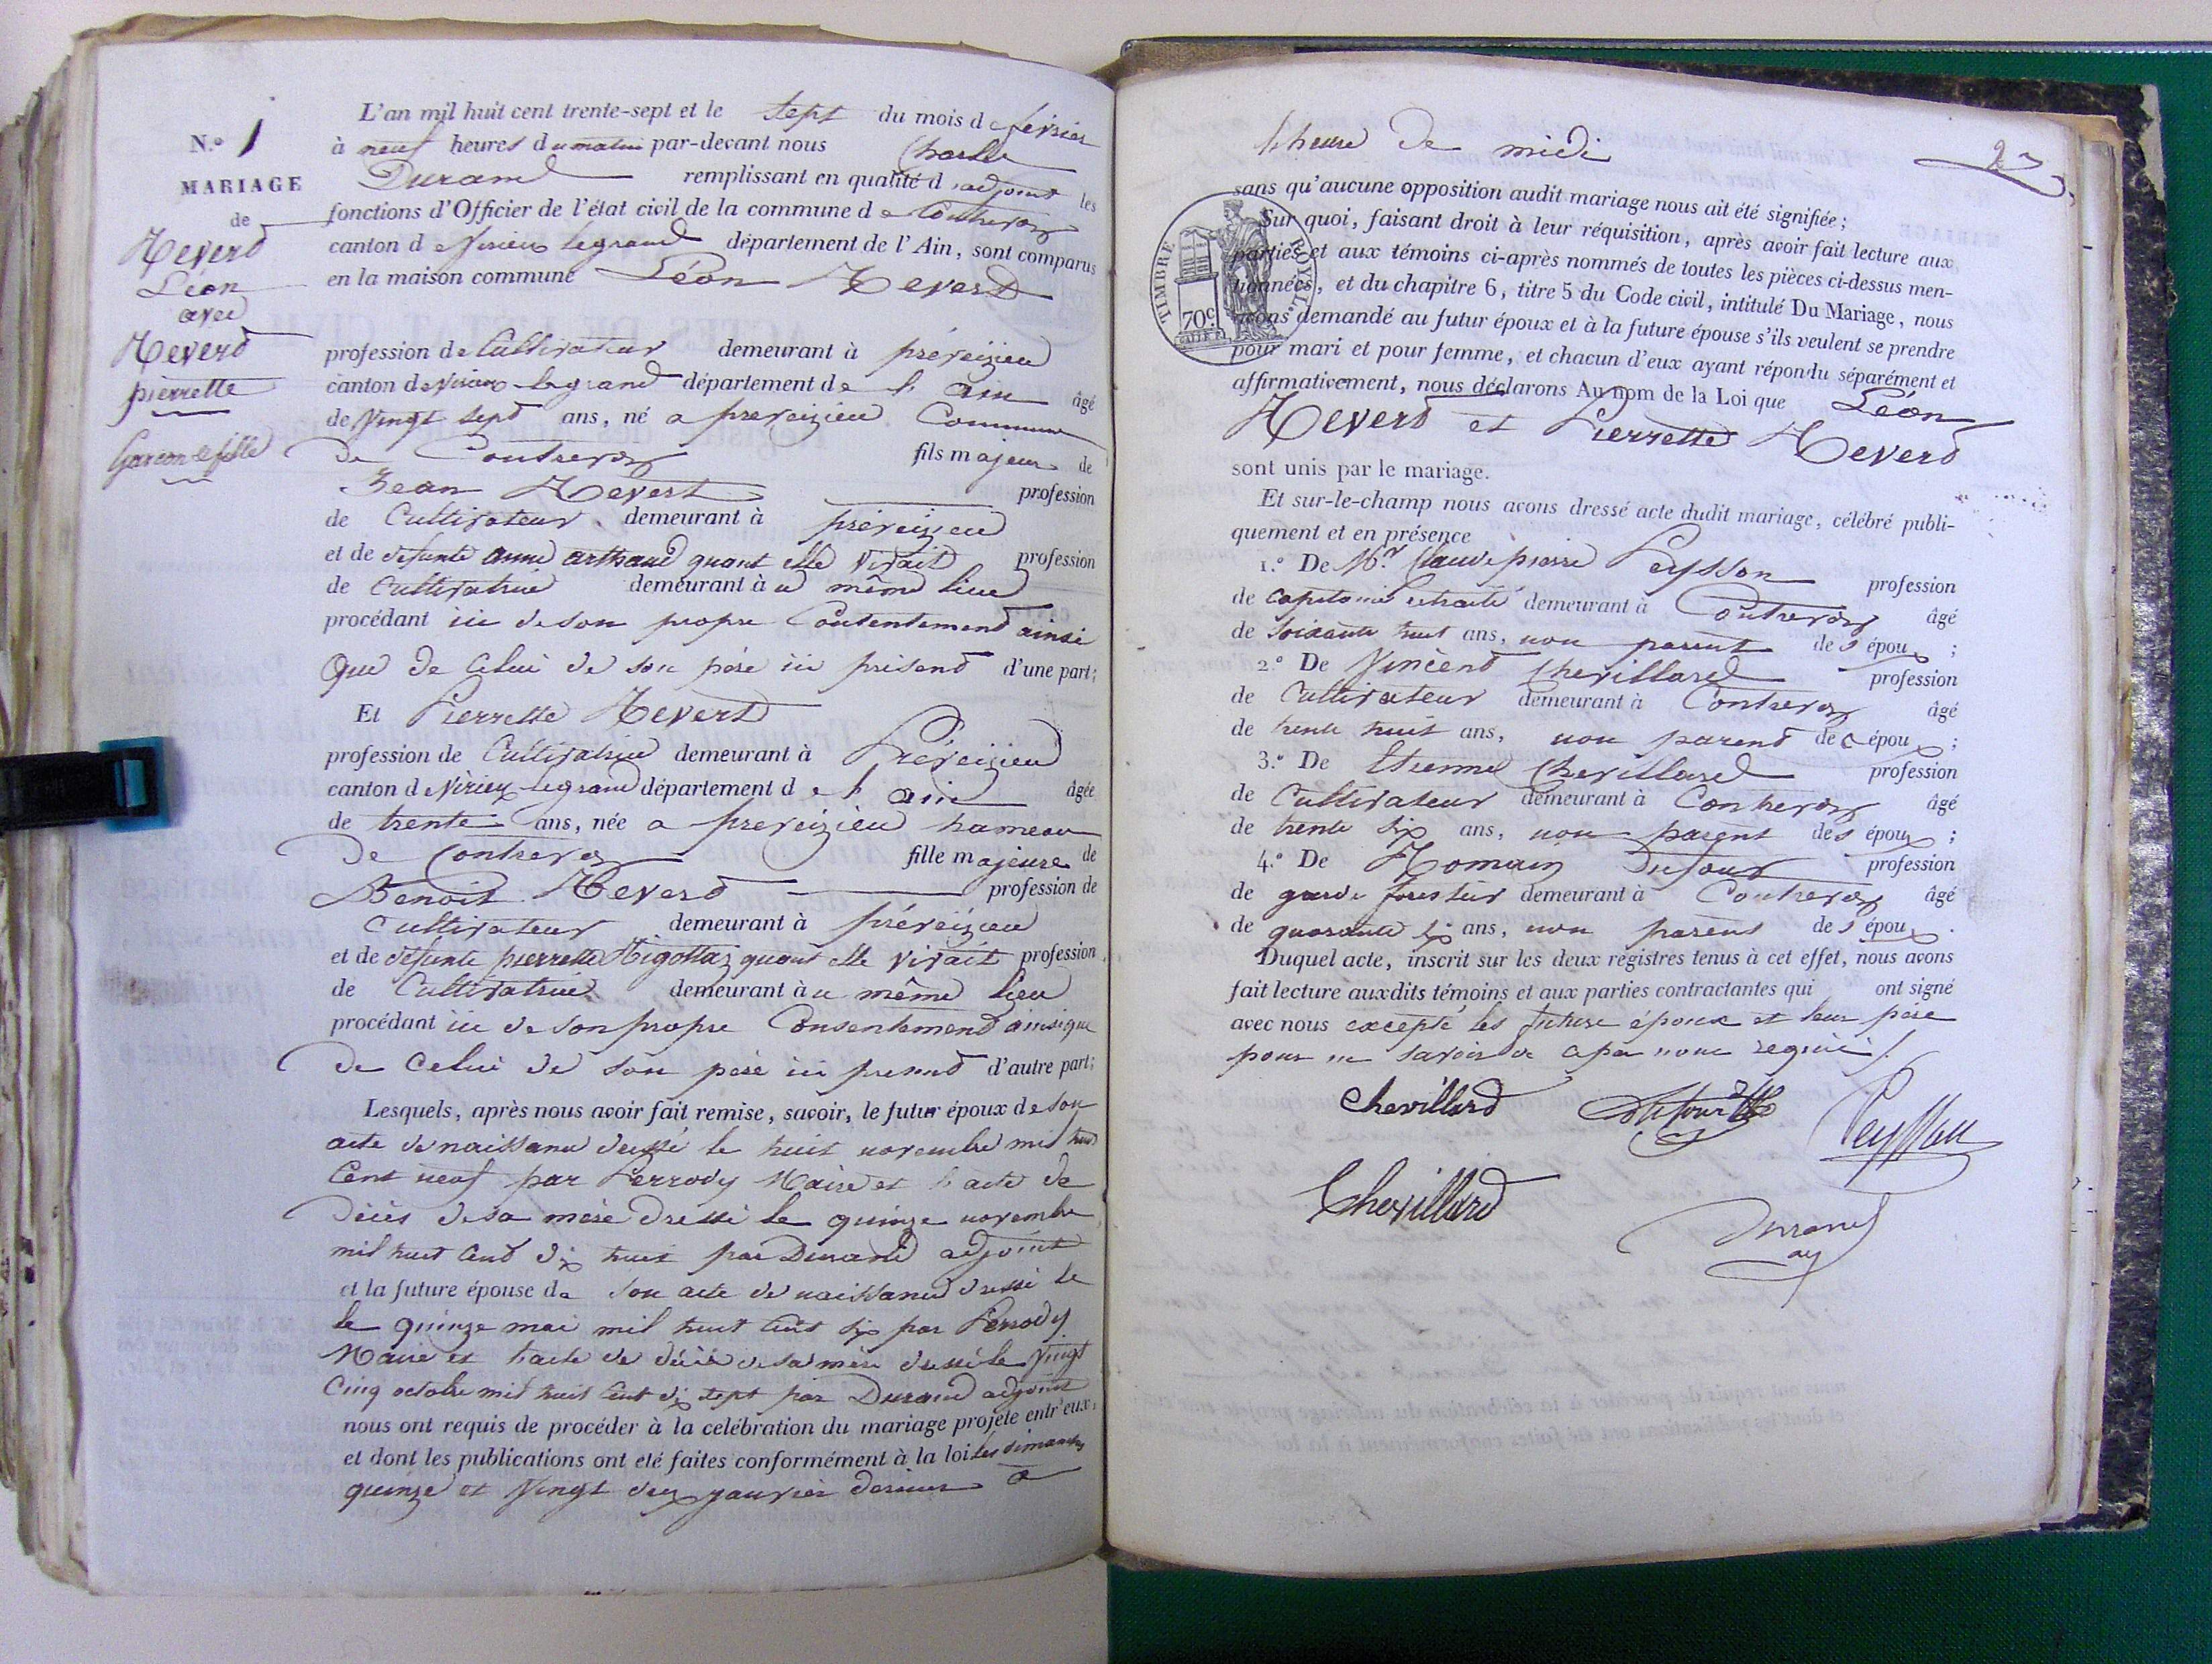 N.o 1
MARIAGE
de
Reverd
Léon
avec
Reverd
pierrette
Garcon et fille
L'an mil huit cent trente-sept et le sept du mois de février
à neuf heures du matin par-devant nous Charle
Durand remplissant en qualité d'adjoint les
fonctions d'Officier de l'état civil de la commune de Contrevoz
canton de Virieu legrand département de l'Ain, sont comparus
en la maison commune Léon Reverd
profession de Cultivateur demeurant à préveizieu
canton de Virieux legrand département de l'ain âgé
de vingt sept ans, né a preveizieu Commune
De Contrevoz fils majeur de
Jean Revert profession
de Cultivateur demeurant à préveizieu
et de defunte anne arthaud quant elle vivait profession
de Cultivatrice demeurant àu même lieu
procédant ici de son propre Contentement ainsi
que de celui de son père ici présend d'une part;
Et Pierrette Reverd
profession de Cultivatrice demeurant à Préveizieu
canton de Virieux legrand département de l'ain âgée
de trente ans, née a preveizieu hameau
De Contrevoz fille majeure de
Benoit Reverd profession de
Cultivateur demeurant à préveizieu
et de défunte pierrette Rigottaz quant elle vivait profession
de Cultivatrice demeurant àu même lieu
procédant ici de son propre Consentement ainsi que
de celui de son père ici présend d'autre part;
Lesquels, après nous avoir fait remise, savoir, le futur époux de son
acte de naissance dressé le huit novembre mil huit
Cent neuf par Perrody Maire et l'acte de
Décès de sa mère dressé le quinze novembre
mil huit cent dix huit par Durand adjoint
et la future épouse de son acte de naissance dressé le
le quinze mai mil huit cent six par Perrody
Maire et l'acte de décès de sa mère dressé le vingt
Cinq octobre mil huit cent dix sept par Durand adjoint
nous ont requis de procéder à la celébration du mariage projeté entr'eux,
et dont les publications ont eté faites conformément à la loi les dimanches
quinze et vingt deux janvier dernier a
2
l'heure de midi
sans qu'aucune opposition audit mariage nous ait été signifiée;
Sur quoi, faisant droit à leur réquisition, après avoir fait lecture aux
parties et aux témoins ci-après nommés de toutes les pièces ci-dessus men-
tionnées, et du chapitre 6, titre 5 du Code civil, intitulé Du Mariage, nous
avons demandé au futur époux et à la future épouse s'ils veulent se prendre
pour mari et pour femme, et chacun d'eux ayant répondu séparément et
affirmativement, nous déclarons Au nom de la Loi que Léon
Reverd et Pierrette Reverd
sont unis par le mariage.
Et sur-le-champ nous avons dressé acte dudit mariage, célébré publi-
quement et en présence
1.o De Mr. Claude pierre Peysson profession
de capitaine retraité demeurant à Contrevoz âgé
de soixante huit ans, non parent des époux;
2.o De Vincent Chevillard profession
de Cultivateur demeurant à Contrevoz âgé
de trente huit ans, non parend des époux;
3.o De Etienne Chevillard profession
de Cultivateur demeurant à Contrevoz âgé
de trente six ans, non parent des époux;
4.o De Romain Dufour profession
de garde forestier demeurant à Contrevoz âgé
de quarante six ans, non parent des époux.
Duquel acte, inscrit sur les deux registres tenus à cet effet, nous avons
fait lecture auxdits témoins et aux parties contractantes qui ont signé
avec nous excepté les future époux et leur père
pour ne savoir de ce par nous requis /.
TIMBRE ROYAL
70c
Chevillard Dufour Peysson
Chevillard
Durand
adj